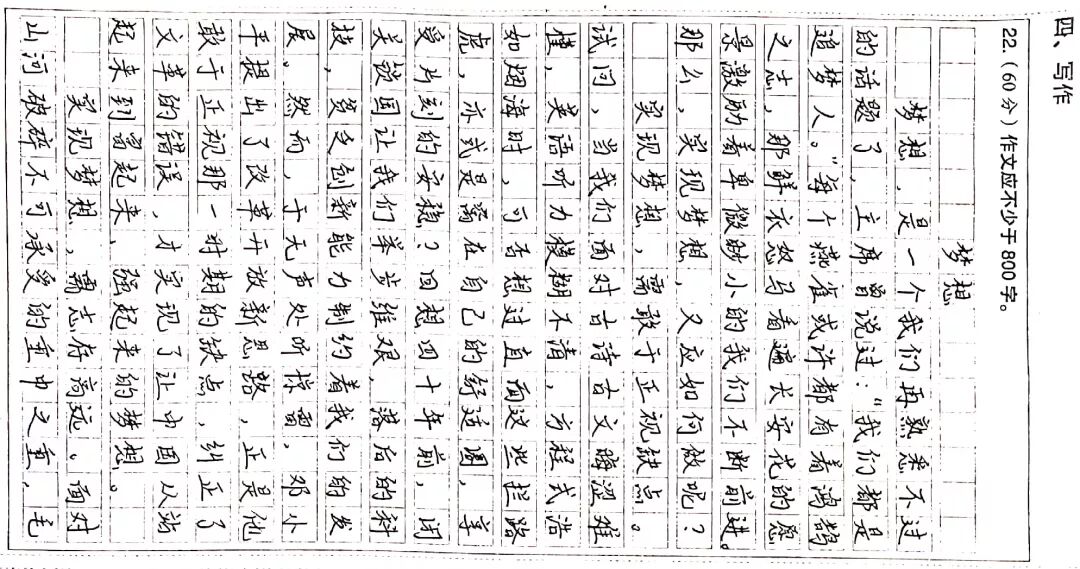 四、写作
22.（60分）作文应不少于800字。
梦想
梦想，是一个我们再熟悉不过
的话题了，主席曾说过：“我们都是
追梦人。”每个燕雀或许都有着鸿鹄
之志，那鲜衣怒马看遍长安花的愿
景激励着卑微渺小的我们不断前进。
那么，实现梦想，又应如何做呢？
实现梦想，需敢于正视缺点。
试问，当我们面对古诗古文晦涩难
懂，英语听力模糊不清，方程式浩
如烟海时，可否想过直面这些拦路
虎，亦或是溺在自己的舒适圈，享
受片刻的安稳？回想四十年前，闭
关锁国让我们举步维艰，落后的科
技，贫乏创新能力制约着我们的发
展。然而，于无声处听惊雷，邓小
平提出了改革开放新思路，正是他
敢于正视那一时期的缺点，纠正了
文革的错误，才实现了让中国从站
起来到富起来、强起来的梦想。
实现梦想，需志存高远。面对
山河破碎不可承受的重中之重，毛